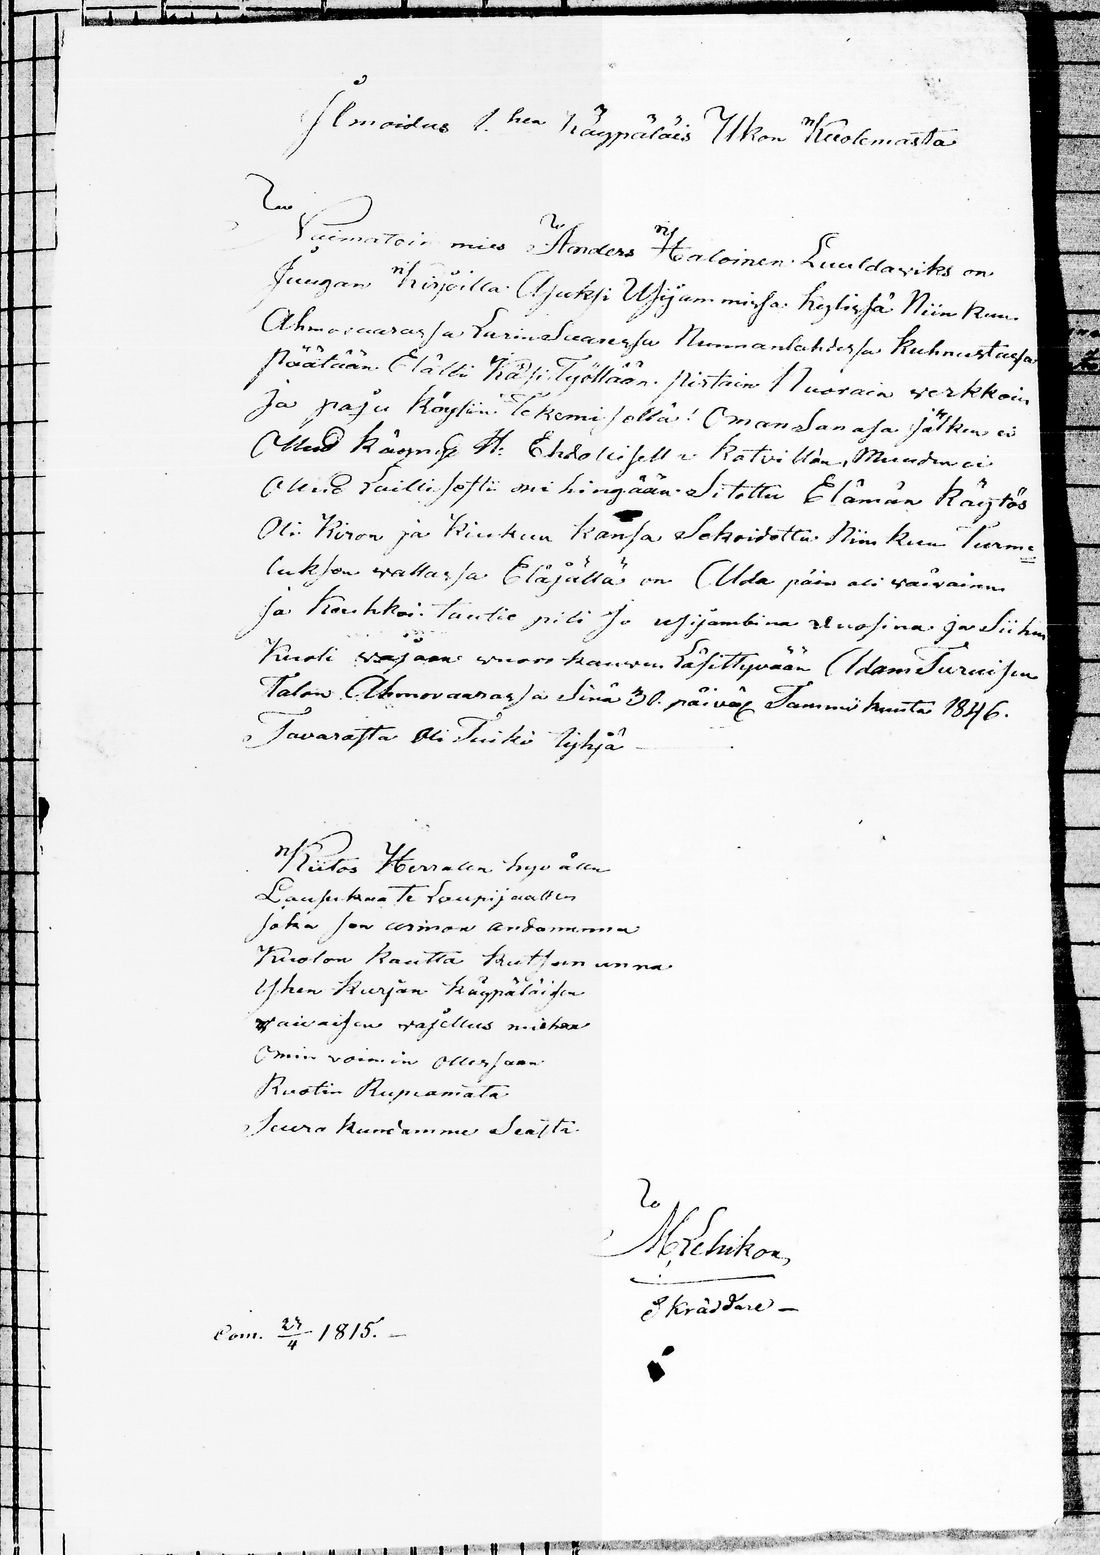 Ilmoidus 1.hen Käypäläis Ukon Kuolemasta
Naimatoin mies Anders Haloinen. Luuldawiks on
Juugan Kirjoilla. Ajuksi Usijammissa kylissä Niin kuu
Ahmovaarassa Larinsaaressa Nunnanlahdessa kuhnustassa
Päätään Elätti Käsi Työllään. pistain Nuorain werkkoin
ja paju köysiin Tekemisellä! Oman Sanasa jälken ei
Ollud käynyt H. Ehdollisella katvillan, Muuden ei
Ollud Laillisesti mihingään. Sitottu Elämän Käytös
Oli Kiron ja Kiukun kansa Sekoidettu Niin kuu Turme
luksen wallassa Eläjällä on Alda päin oli waiwainen
ja Keuhkoi tautie piti jo usijambina vuosina. ja Siihen
Kuoli wajaan wuorokauwen Läsittyvään Adam Turuisen
Talon Ahmovaarassa Sinä 30. päivä Tammikuuta 1846.
Tavarasta Oli Tuiki tyhjä
Kiitos Herrallen hyvällen
Laupiaallen
joka sen armon andanunna
Kuolon kautta kutsununna
Yhen kurjan käypäläisen
waivaisen wajellus miehen
Omin voimin ollessaan
Ruotin Rupiamata
Seurakundamme Seasta
M. Lehikon,
Skräddare –
Com. 23/4 1815. –